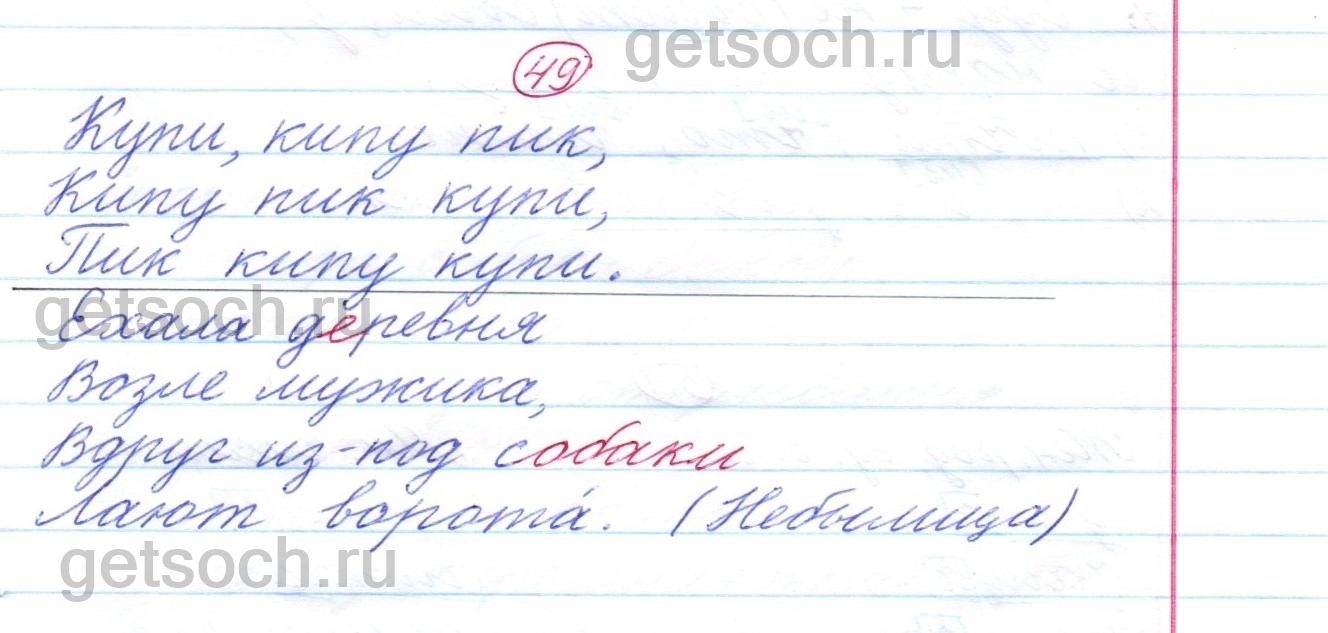 getsoch.ru
49
Купи, кипу пик,
Кипу пик купи,
Пик кипу купи.
getsoch.ru
Ехала деревня
Возле мужика,
Вдруг из-под собаки
Лают ворота́. (Небылица)
getsoch.ru